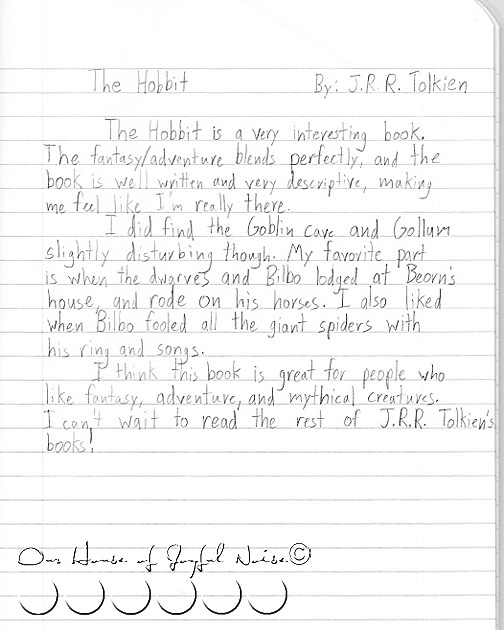 The Hobbit By: J.R.R. Tolkien
The Hobbit is a very interesting book.
The fantasy/adventure blends perfectly, and the
book is well written and very descriptive, making
me feel like I'm really there.
I did find the Goblin cave and Gollum
slightly disturbing though. My favorite part
is when the dwarves and Bilbo lodged at Beorn's
house, and rode on his horses. I also liked
when Bilbo fooled all the giant spiders with
his ring and songs.
I think this book is great for people who
like fantasy, adventure, and mythical creatures.
I can't wait to read the rest of J.R.R. Tolkien's
books!
Our House of Joyful Noise©